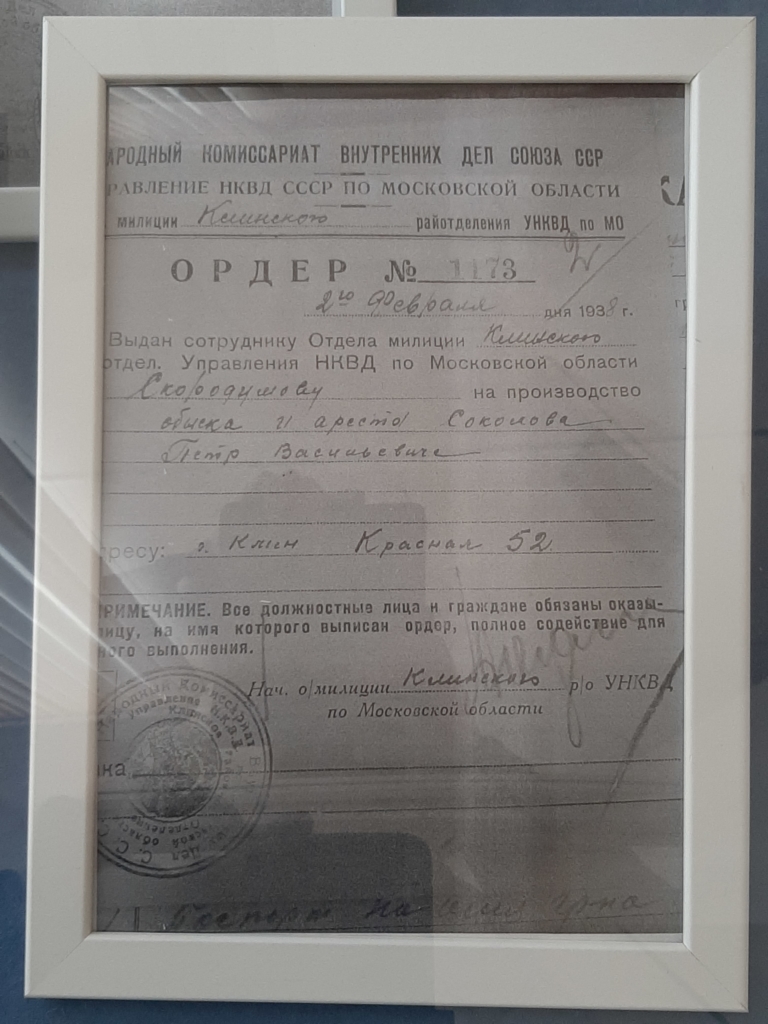 АРОДНЫЙ КОМИССАРИАТ ВНУТРЕННИХ ДЕЛ СОЮЗА ССР
РАВЛЕНИЕ НКВД СССР ПО МОСКОВСКОЙ ОБЛАСТИ
милиции Клинского райотделения УНКВД по МО
ОРДЕР № 1173
2го февраля дня 1938 г.
Выдан сотруднику Отдела милиции Клинского
отдел. Управления НКВД по Московской области
Скородумову на производство
обыска и ареста Соколова
Петр Васильевича
ресу: г. Клин Красная 52
РИМЕЧАНИЕ. Все должностные лица и граждане обязаны оказы-
лицу, на имя которого выписан ордер, полное содействие для
ного выполнения.
Нач. о/милиции Клинского р/о УНКВД
по Московской области
Паспорт на имя гр-на